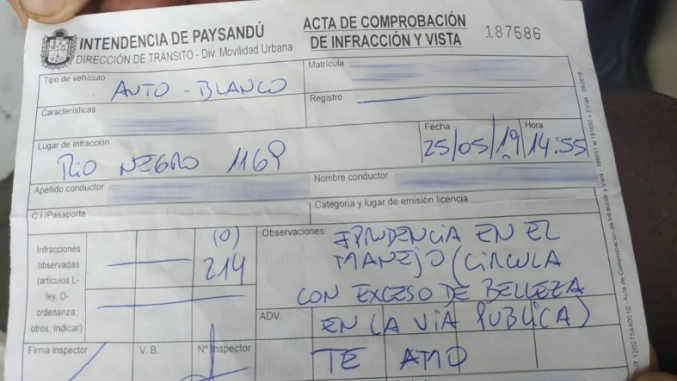 INTENDENCIA DE PAYSANDÚ
DIRECCIÓN DE TRÁNSITO - Div. Movilidad Urbana
ACTA DE COMPROBACIÓN
DE INFRACCIÓN Y VISTA
187586
Tipo de vehículo
AUTO - BLANCO
Matrícula
Características
Registro
Lugar de infracción
RIO NEGRO 1169
Fecha
25/05/19
Hora
14:55
Apellido conductor
Nombre conductor
C.I/Pasaporte
Categoría y lugar de emisión licencia
Infracciones
observadas
(artículos L-
ley, O-
ordenanza,
otros, indicar)
(O)
214
Observaciones:
EN EL
MANEJO (CIRCULA
CON EXCESO DE BELLEZA
EN LA VIA PUBLICA)
TE AMO
ADV.
Firma Inspector
V. B.
Nº Inspector